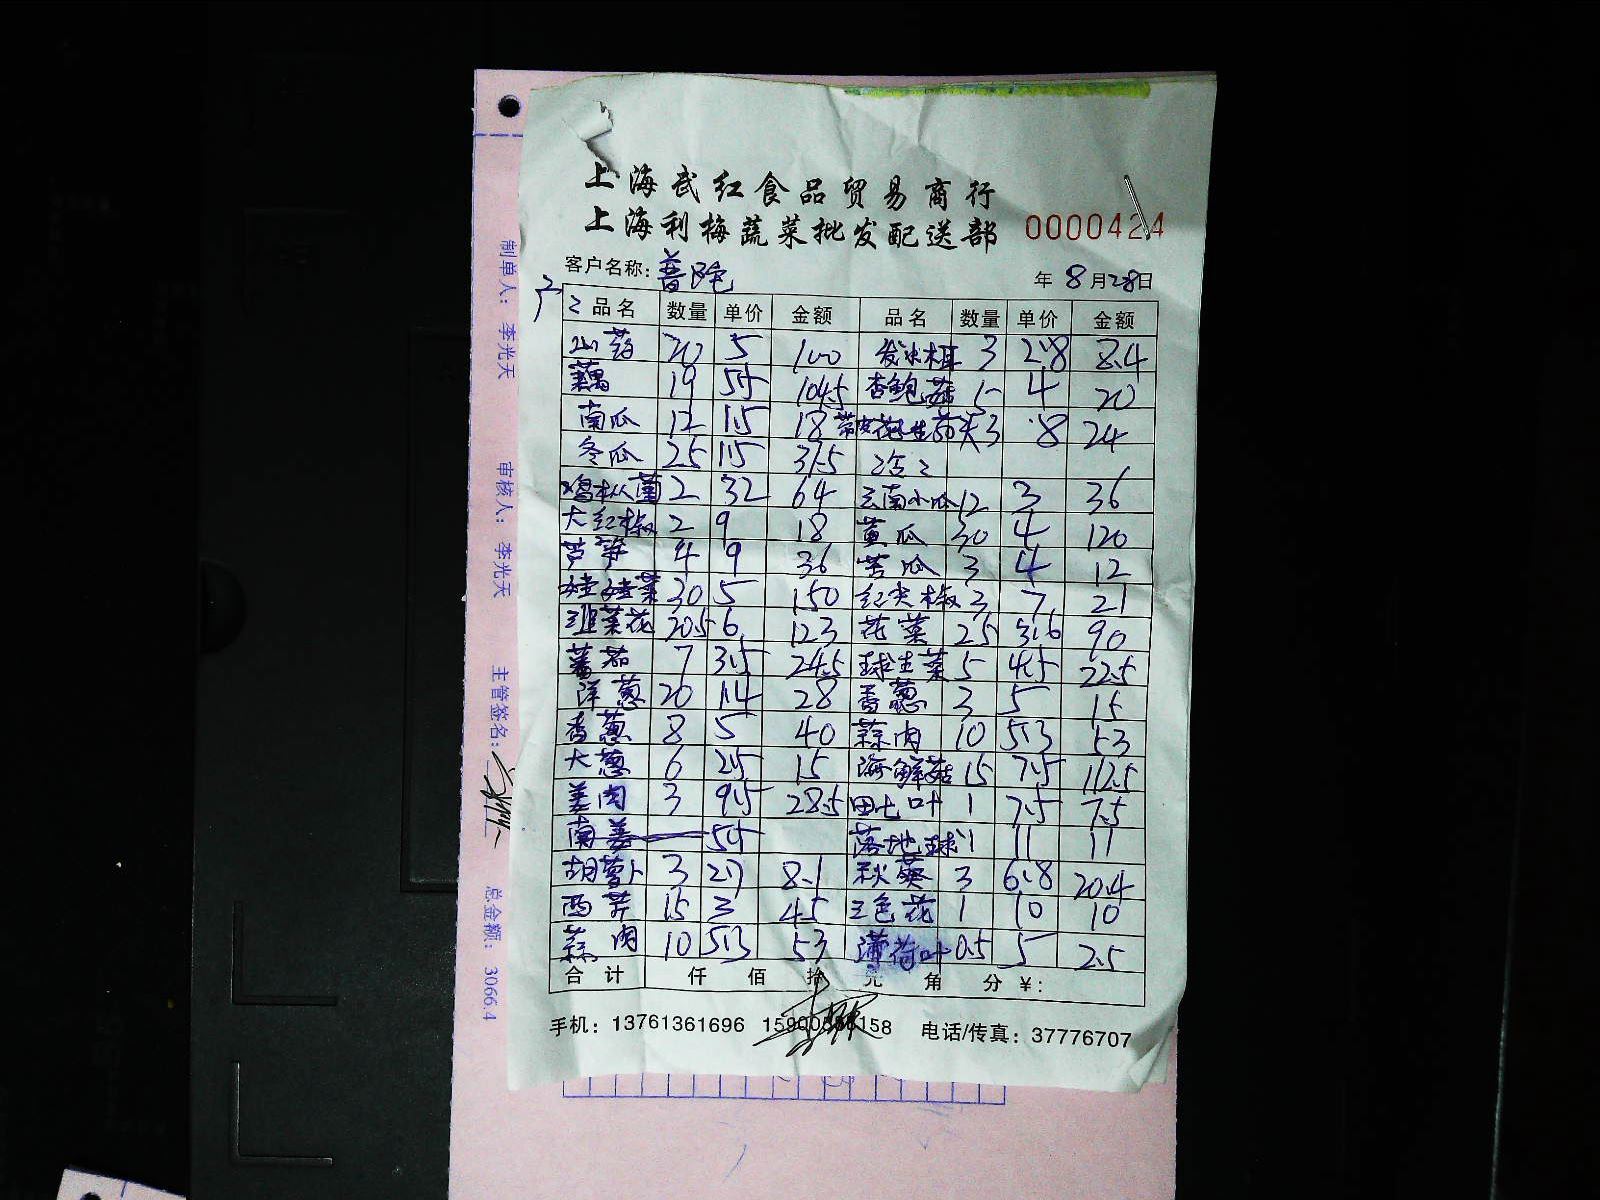 上海武红食品贸易商行
上海利梅蔬菜批发配送部 0000424
客户名称: 普陀 年 8 月 28 日
品名 数量 单价 金额 品名 数量 单价 金额
山药 20 5 100 发水木耳 3 2.8 8.4
藕 19 5.5 104.5 杏鲍菇 5 4 20
南瓜 12 1.5 18 带皮 3 8 24
冬瓜 25 1.5 37.5
鸡枞菌 2 32 64 云南小瓜 12 3 36
大红椒 2 9 18 黄瓜 30 4 120
芦笋 4 9 36 苦瓜 3 4 12
娃娃菜 30 5 150 红尖椒 3 7 21
韭菜花 20.5 6 123 花菜 25 3.6 90
蕃茄 7 3.5 24.5 球生菜 5 4.5 22.5
洋葱 20 1.4 28 香葱 3 5 15
香葱 8 5 40 蒜肉 10 5.3 53
大葱 6 2.5 15 海鲜菇 15 7.5 112.5
姜肉 3 9.5 28.5 田七叶 1 7.5 7.5
南姜 落地球 1 11 11
胡萝卜 3 2.7 8.1 秋葵 3 6.8 20.4
西芹 15 3 45 三色花 1 10 10
蒜肉 10 5.3 53 薄荷叶 0.5 5 2.5
合计 仟 佰 拾 元 角 分 ¥:
手机: 13761361696 158 电话/传真: 37776707
制单人: 李光天 审核人: 李光天 主管签名: 总金额: 3066.4